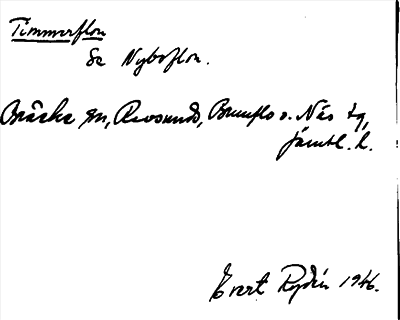 Timmerflon
Se Nyboflon.
Bräcke sn, Revsunds, Brunflo o. Näs tg,
Jämtl. l.
Evert Rydén 1946.